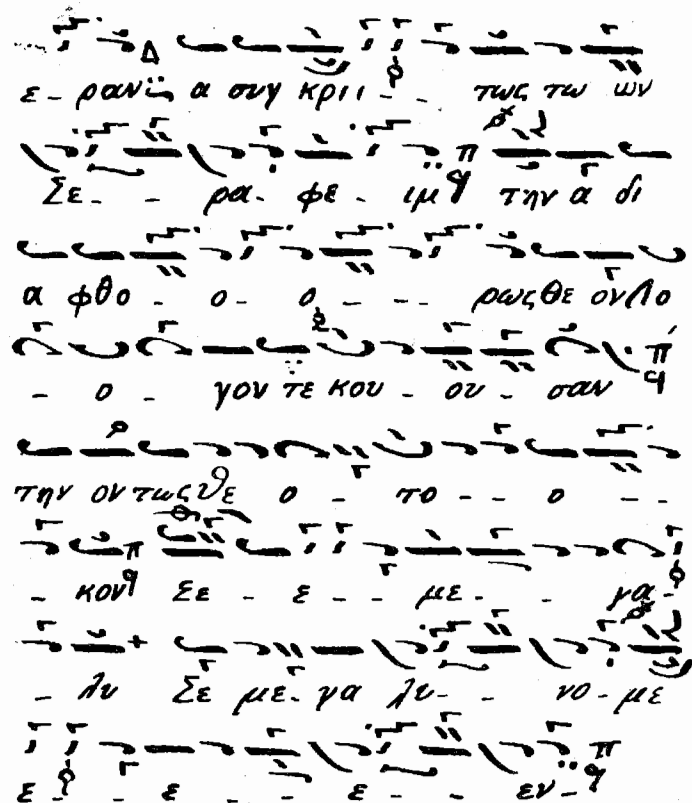 ε - ραν α συγ κριι - - τως τω ων
Σε - - ρα - φε - ιμ την α δι
α φθο - ο - ο - - - ρως θε ον Λο
- ο - γον τε κου - ου - σαν
την ον τως θε ο - το - - ο - -
- κον Σε - ε - - με - - γα -
- λυ Σε με - γα λυ - - νο - με
ε - - ε - - ε - - εν